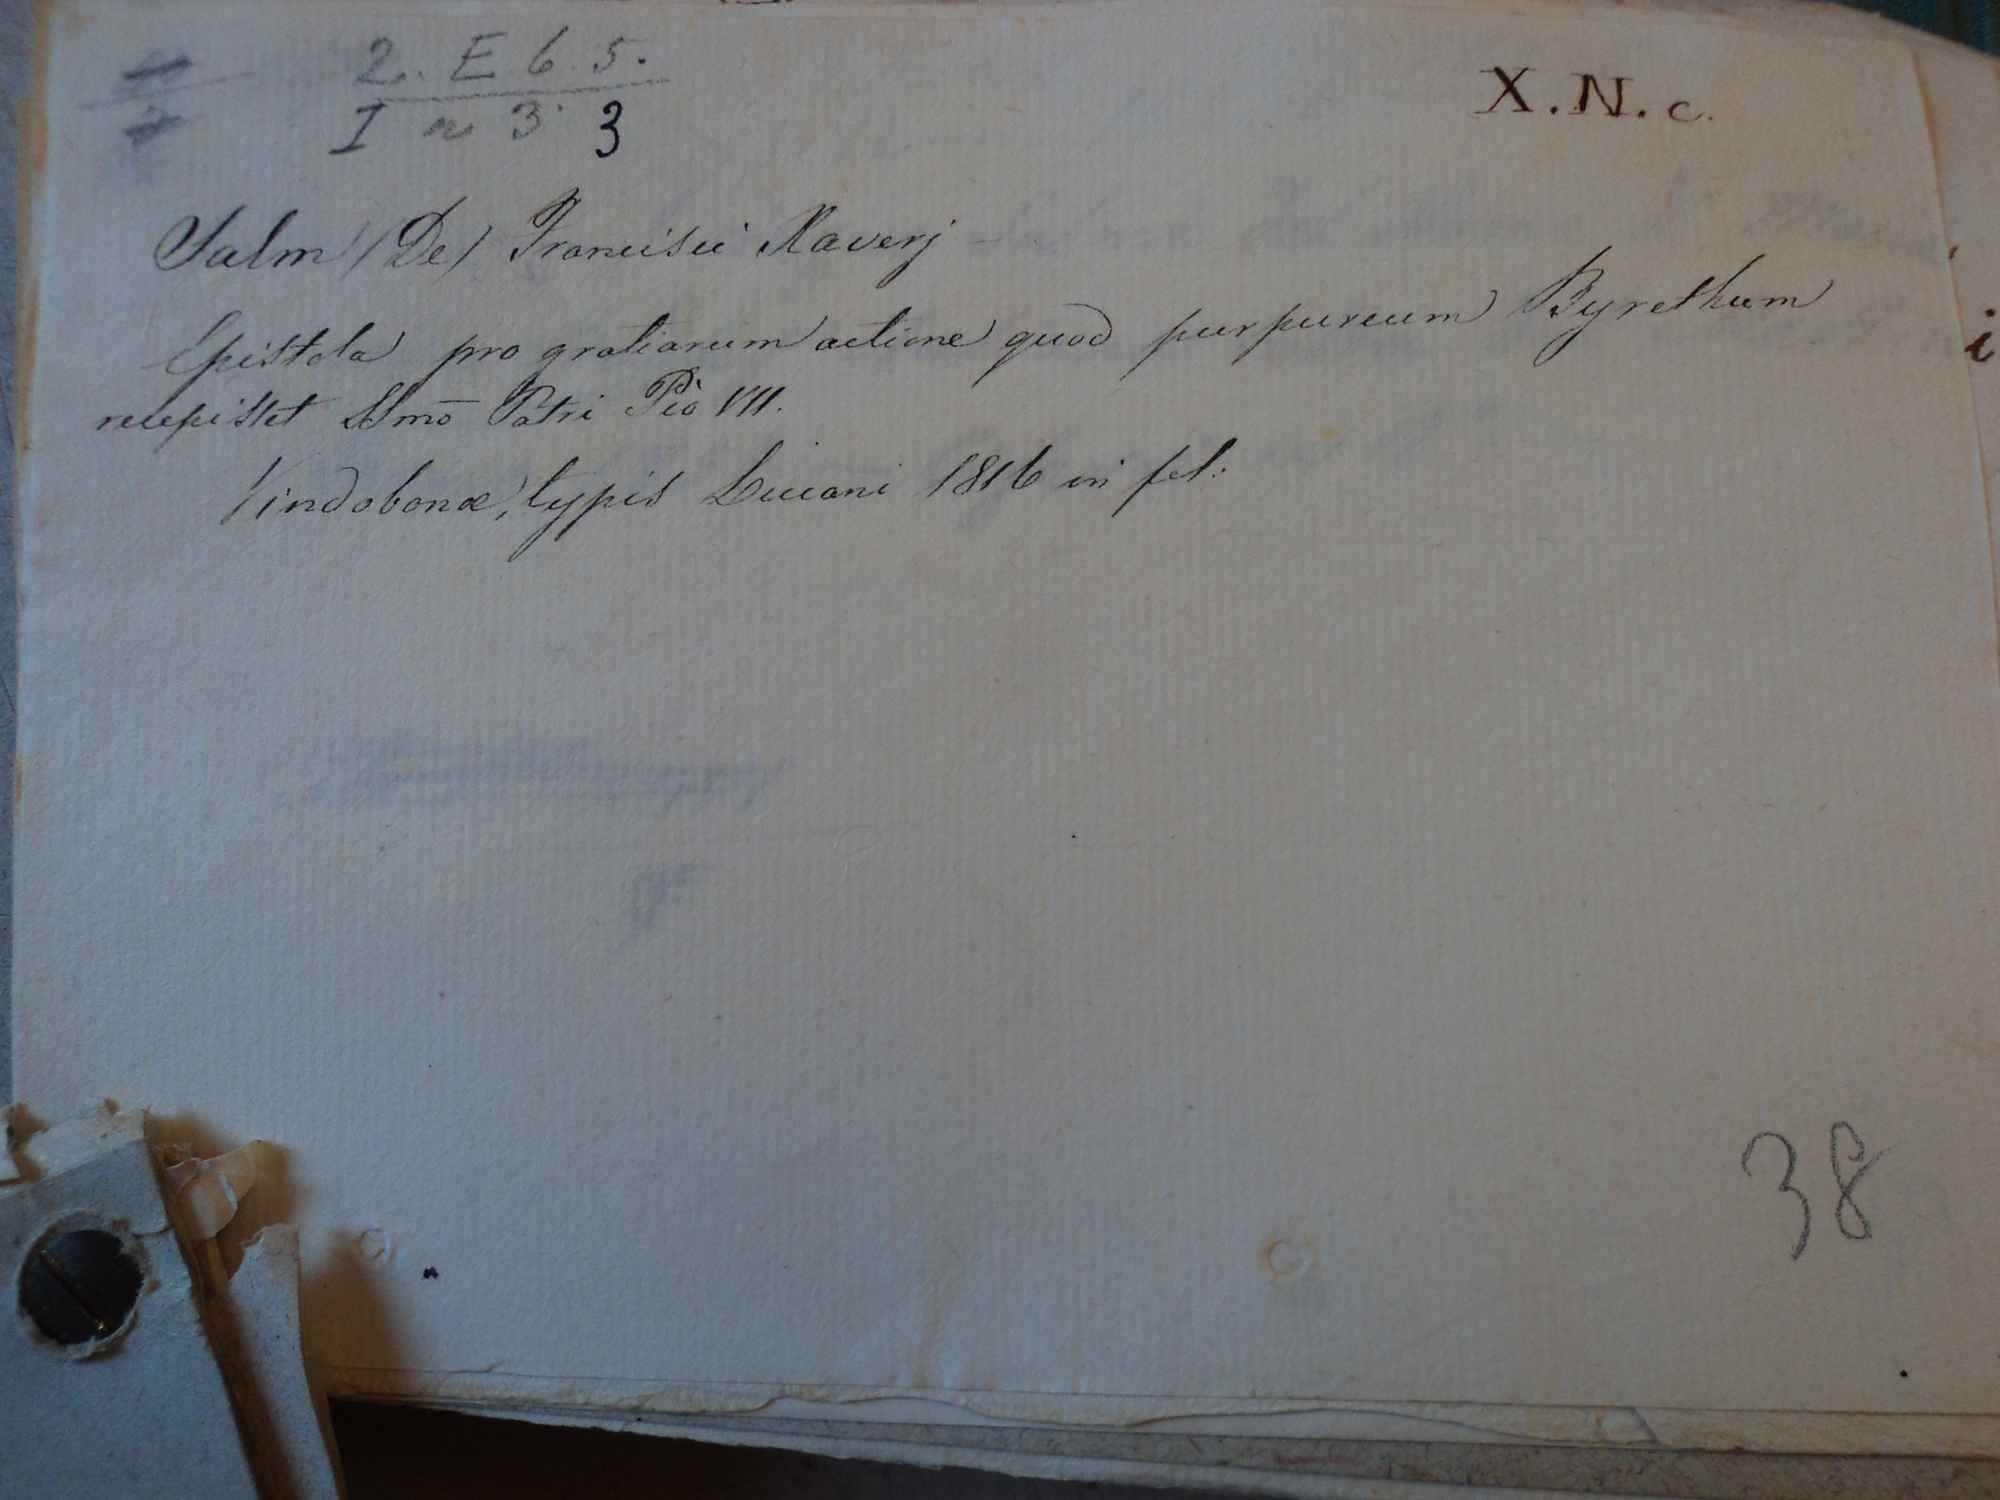 2. E 6. 5.
X. N. c.
I n 3 3
Salm (De) Francisci Xaverj
Epistola pro gratiarum actione quod purpureum Byrethum
recepisset SSmō Patri Pio VII.
Vindobonæ, typis Luciani 1816 in fol:
i
38